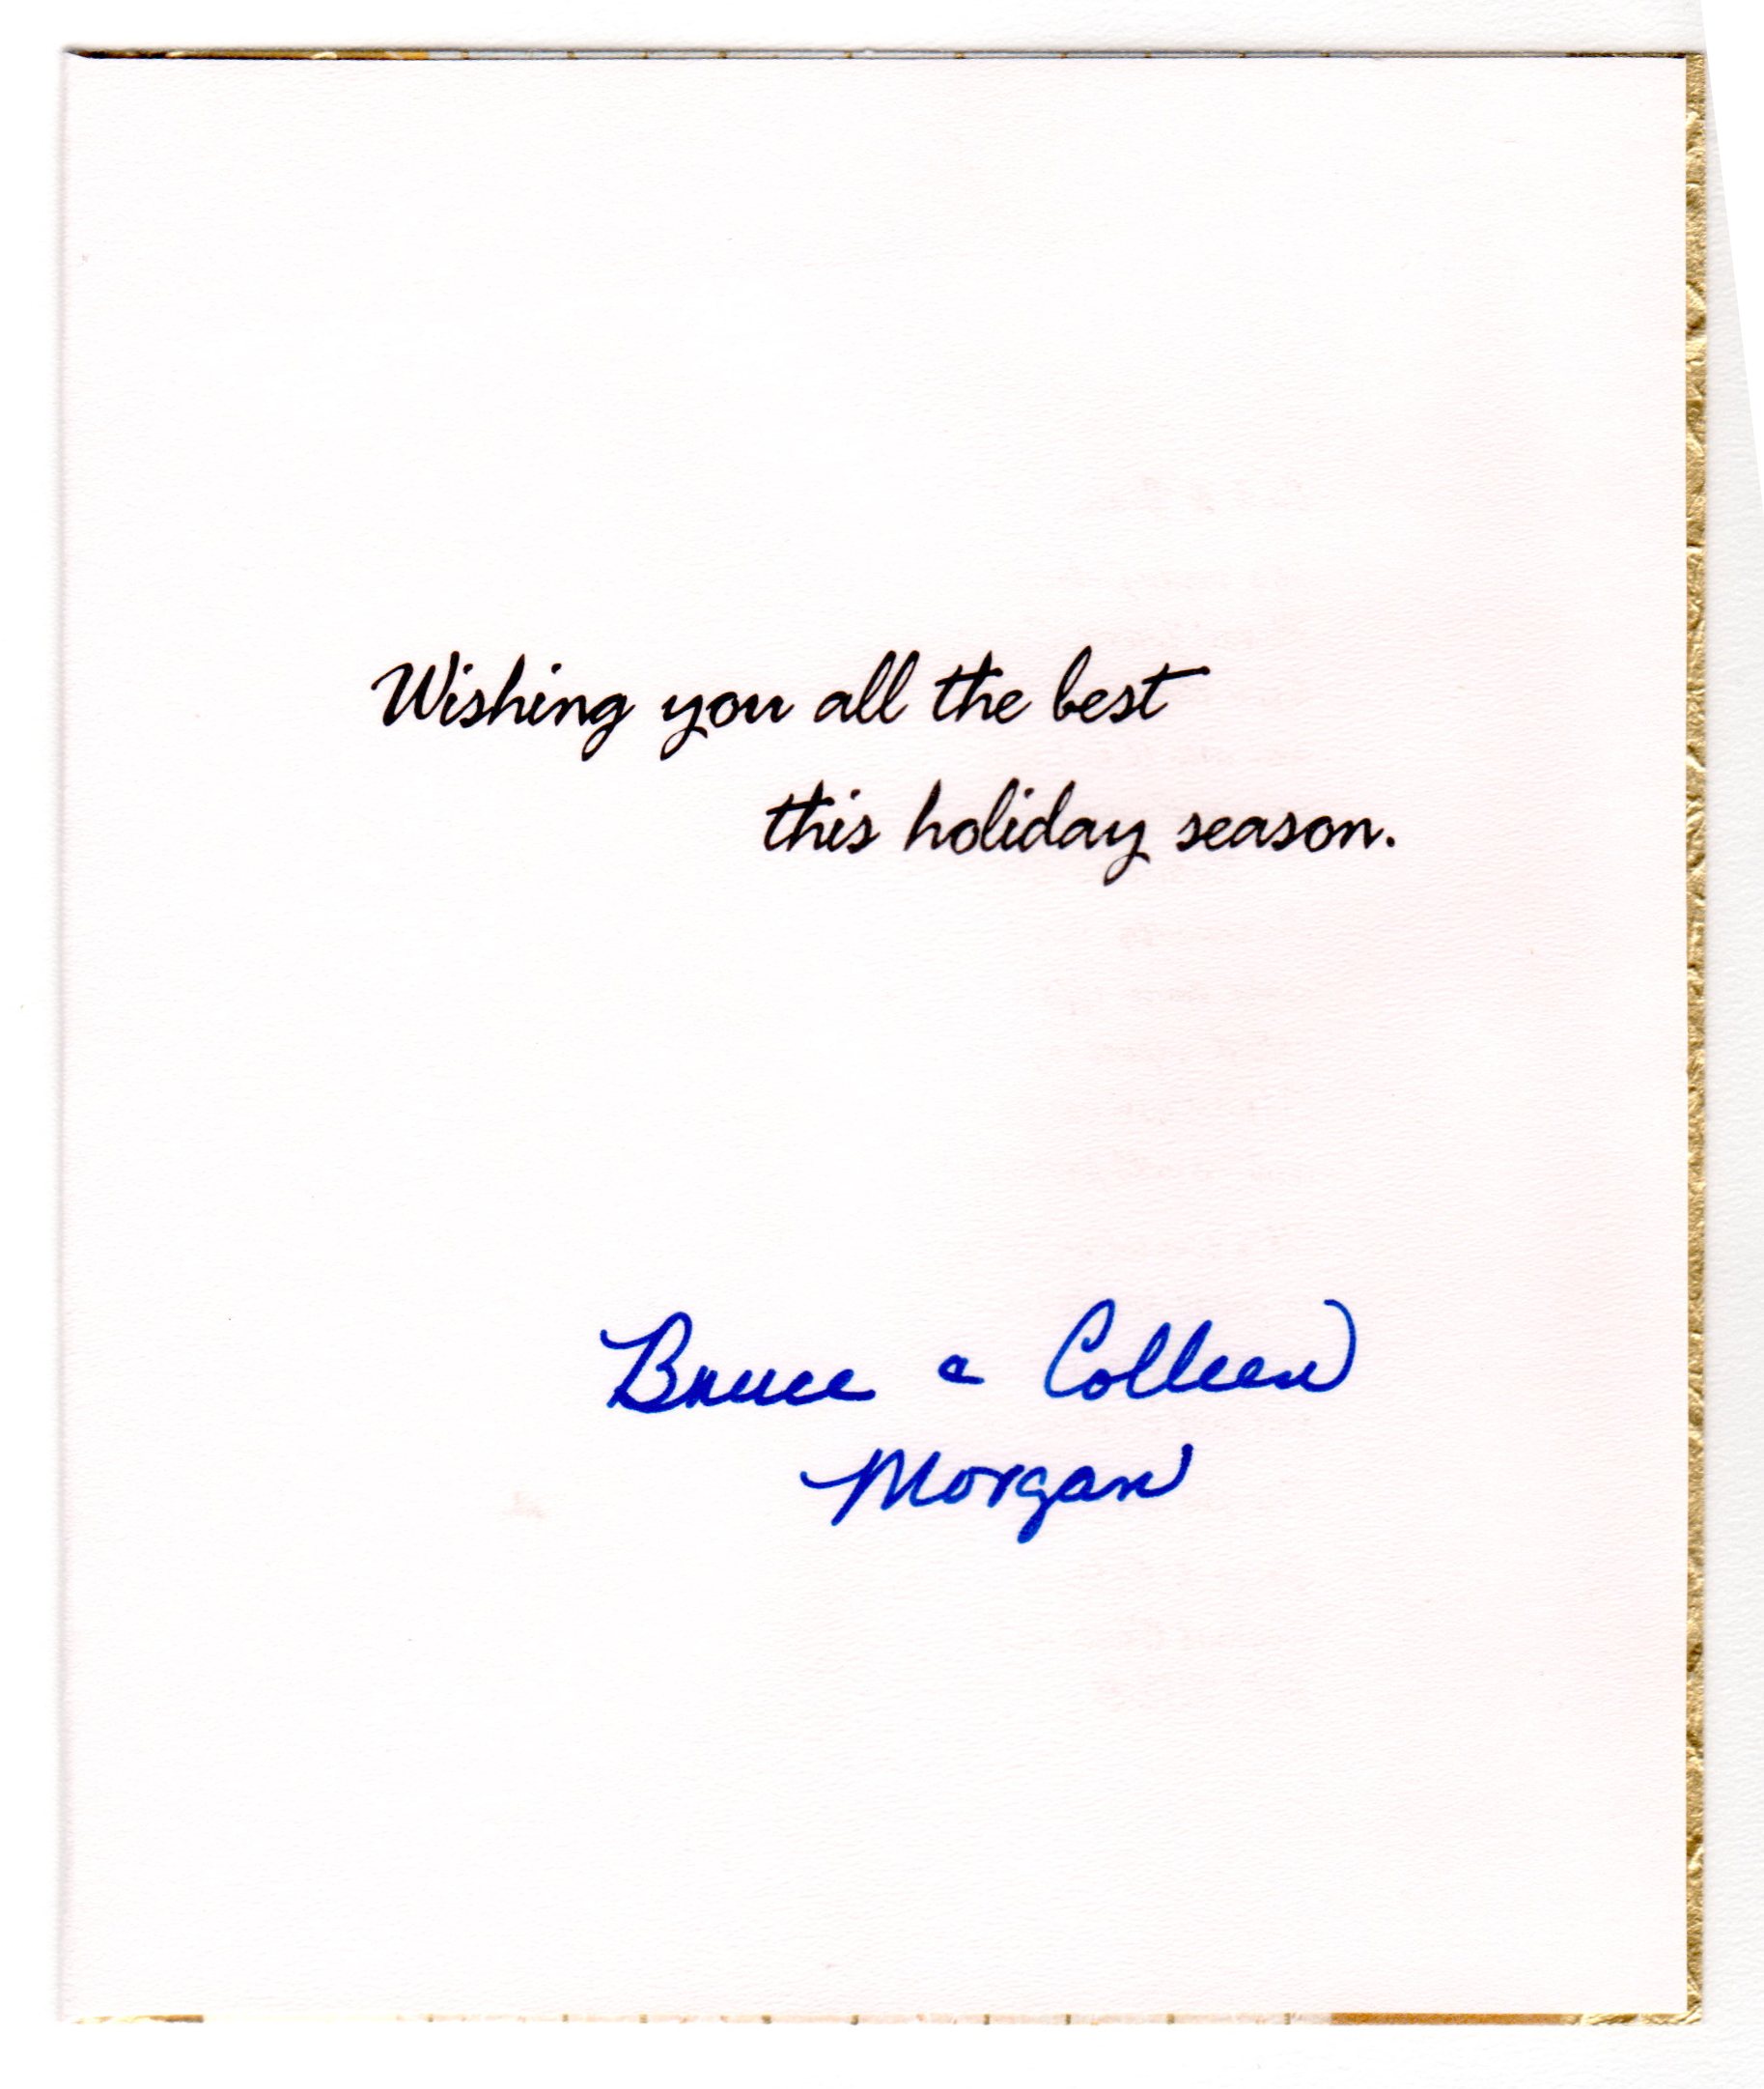 Wishing you all the best
this holiday season.
Bruce & Colleen
Morgan